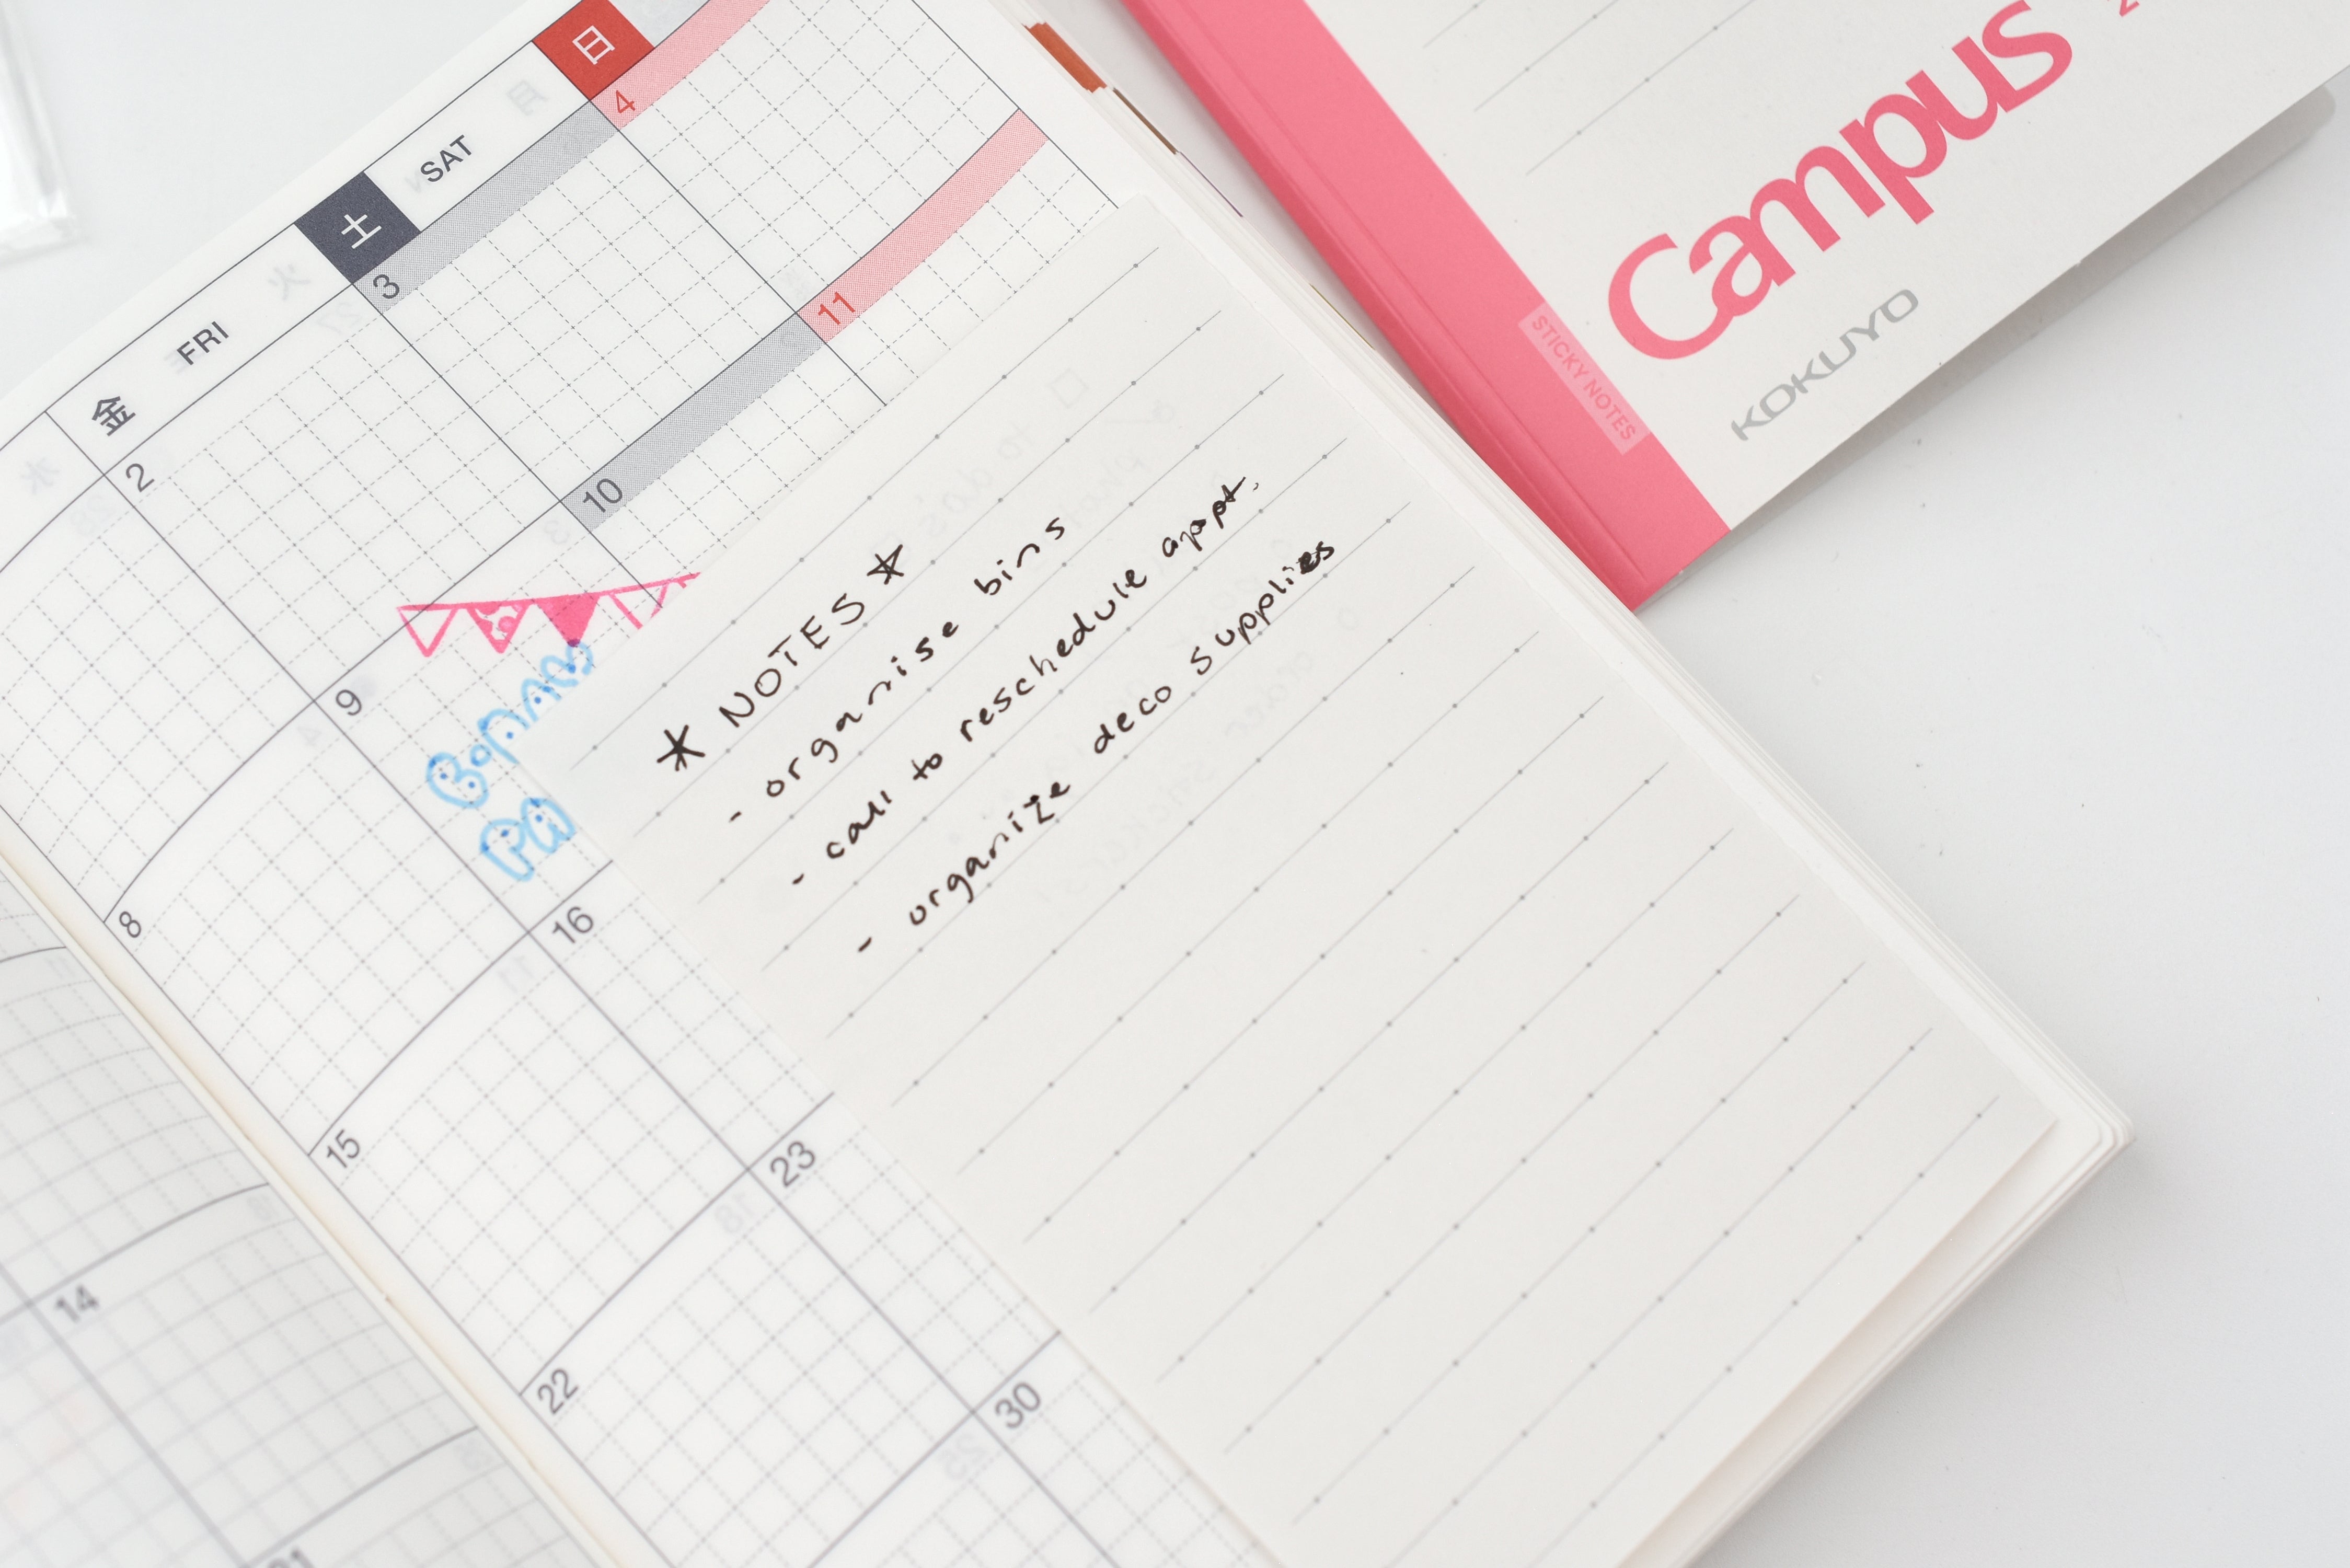 日
SAT
4
土
FRI
3
金
11
2
10
9
8
16
15
23
14
22
30
★ NOTES ★
- organise bins
- call to reschedule appt.
- organize deco supplies
Campus
KOKUYO
STICKY NOTES